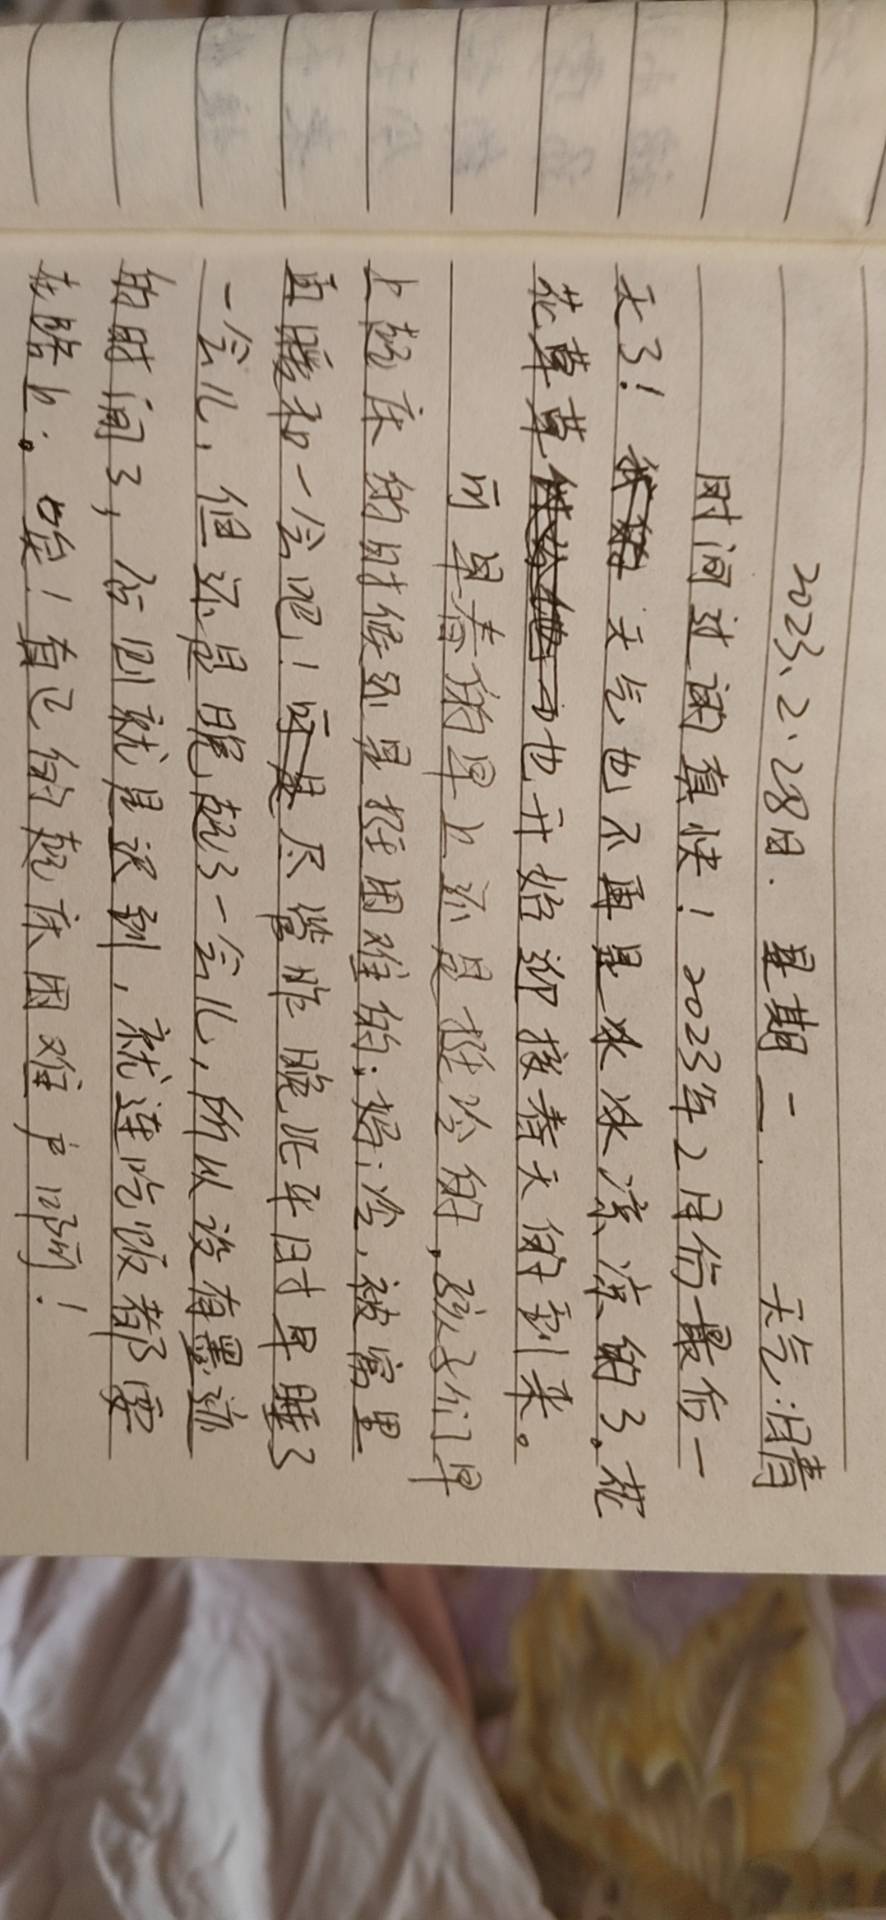 2023、2、28日. 星期二. 天气:晴
时间过的真快！2023年2月份最后一
天了！天气也不再是冰冰凉凉的了。花
花草草也开始迎接春天的到来。
可早春的早上还是挺冷的，孩子们早
上起床的时候还是挺困难的：妈：冷，被窝里
再暖和一会吧！尽管昨晚比平时早睡了
一会儿，但还是晚起了一会儿，所以没有墨迹
的时间了，否则就是迟到，就连吃饭都要
在路上。唉！有己的起床困难户啊！